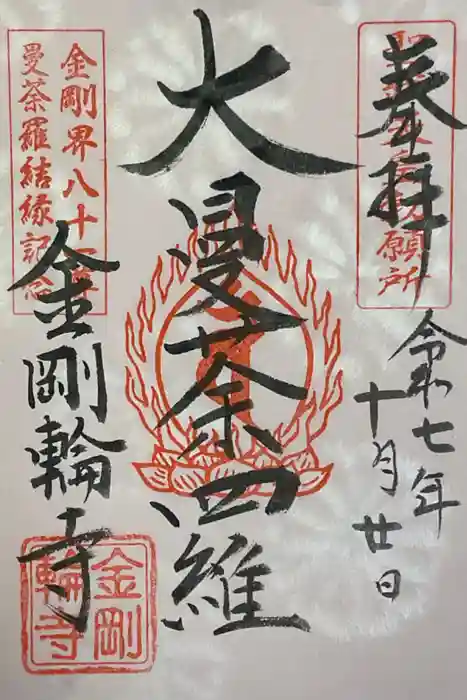 奉拝
願所
令和七年
十月廿日
大曼荼羅
金剛界八十一尊
曼荼羅結縁記念
金剛輪寺
金剛
輪寺